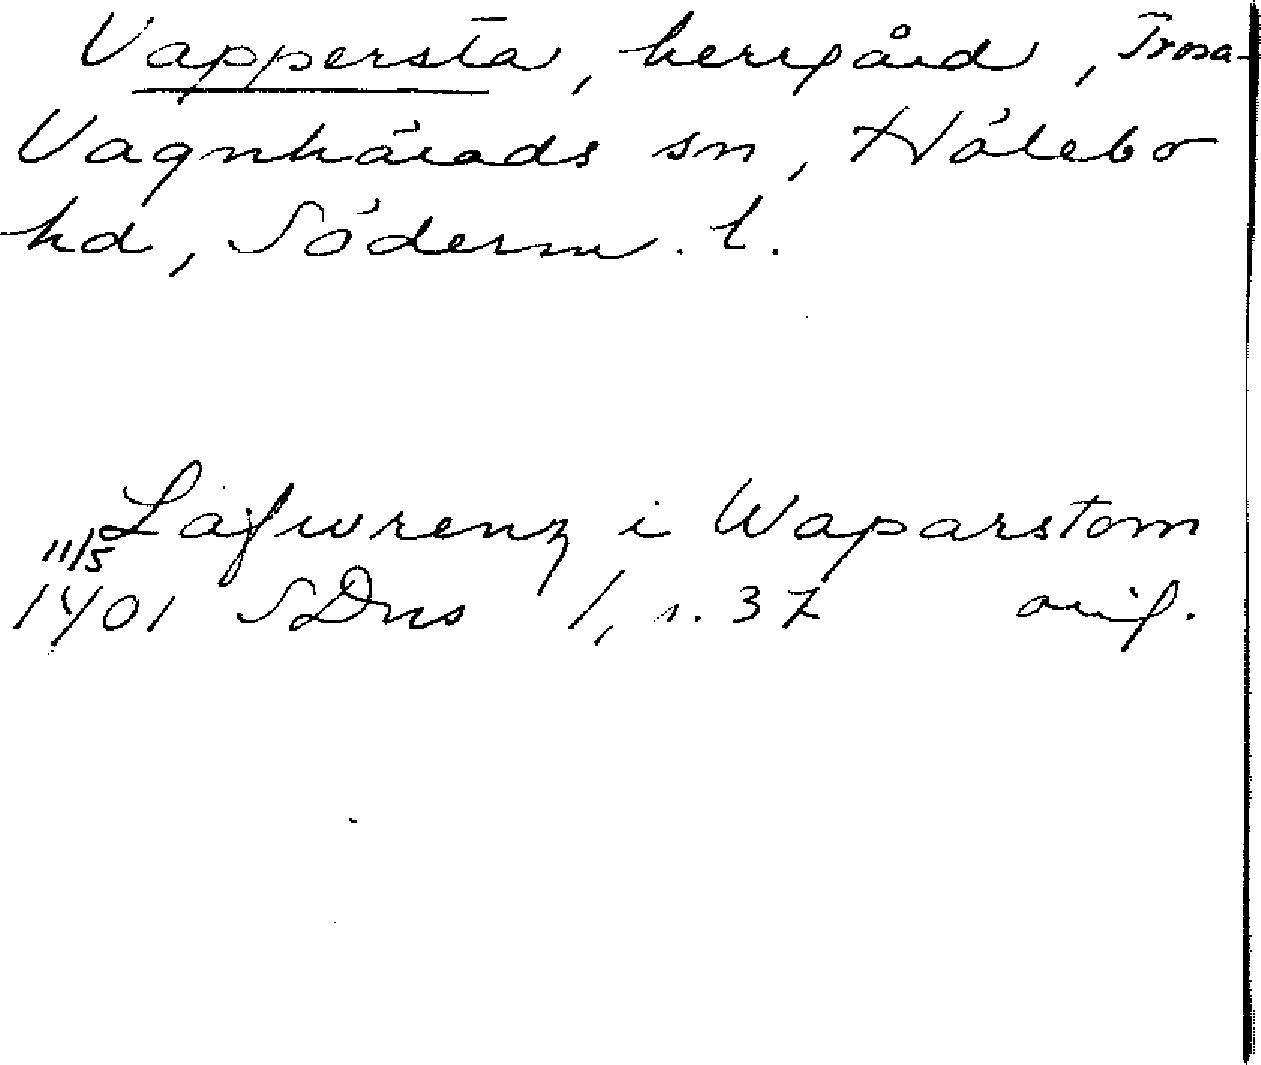 Vappersta, herrgård, Trosa-
Vagnhärads sn, Hölebo
hd, Söderm. l.
Lafwrenz i Waparstom
11/5
1401 SDns 1, s. 37 orig.